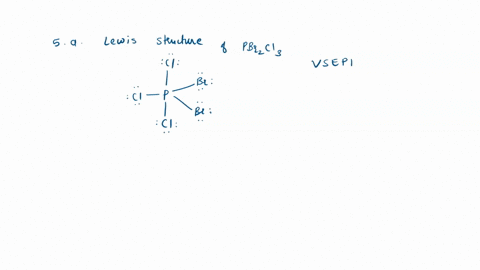 5.a. Lewis structure of PBr₂Cl₃
VSEPI
:Cl:
:Cl — P
Br:
Br:
:Cl: